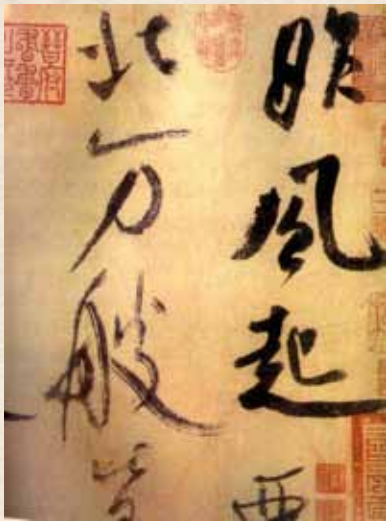 昨風起西
北万艘皆